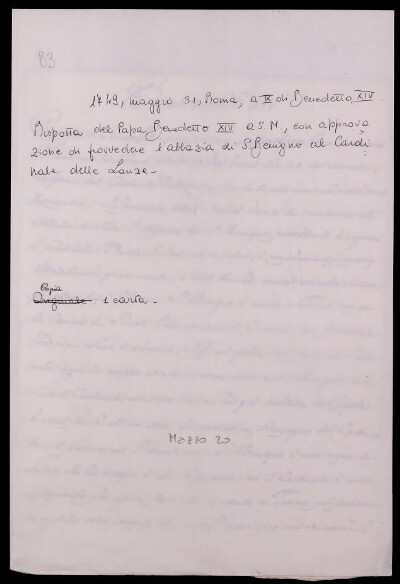 83
1749, maggio 31, Roma, a IX di Benedetto XIV
Risposta del Papa Benedetto XIV a S.M., con approva
zione di provvedere l'abbazia di S. Benigno al Cardi
nale delle Lanze -
Copia
Originale 1 carta -
Mazzo 20